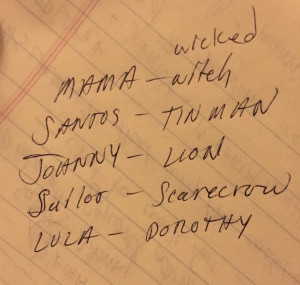 wicked
MAMA — witch
SANTOS — TIN MAN
JOHNNY — LION
Sailor — Scarecrow
LULA — DOROTHY